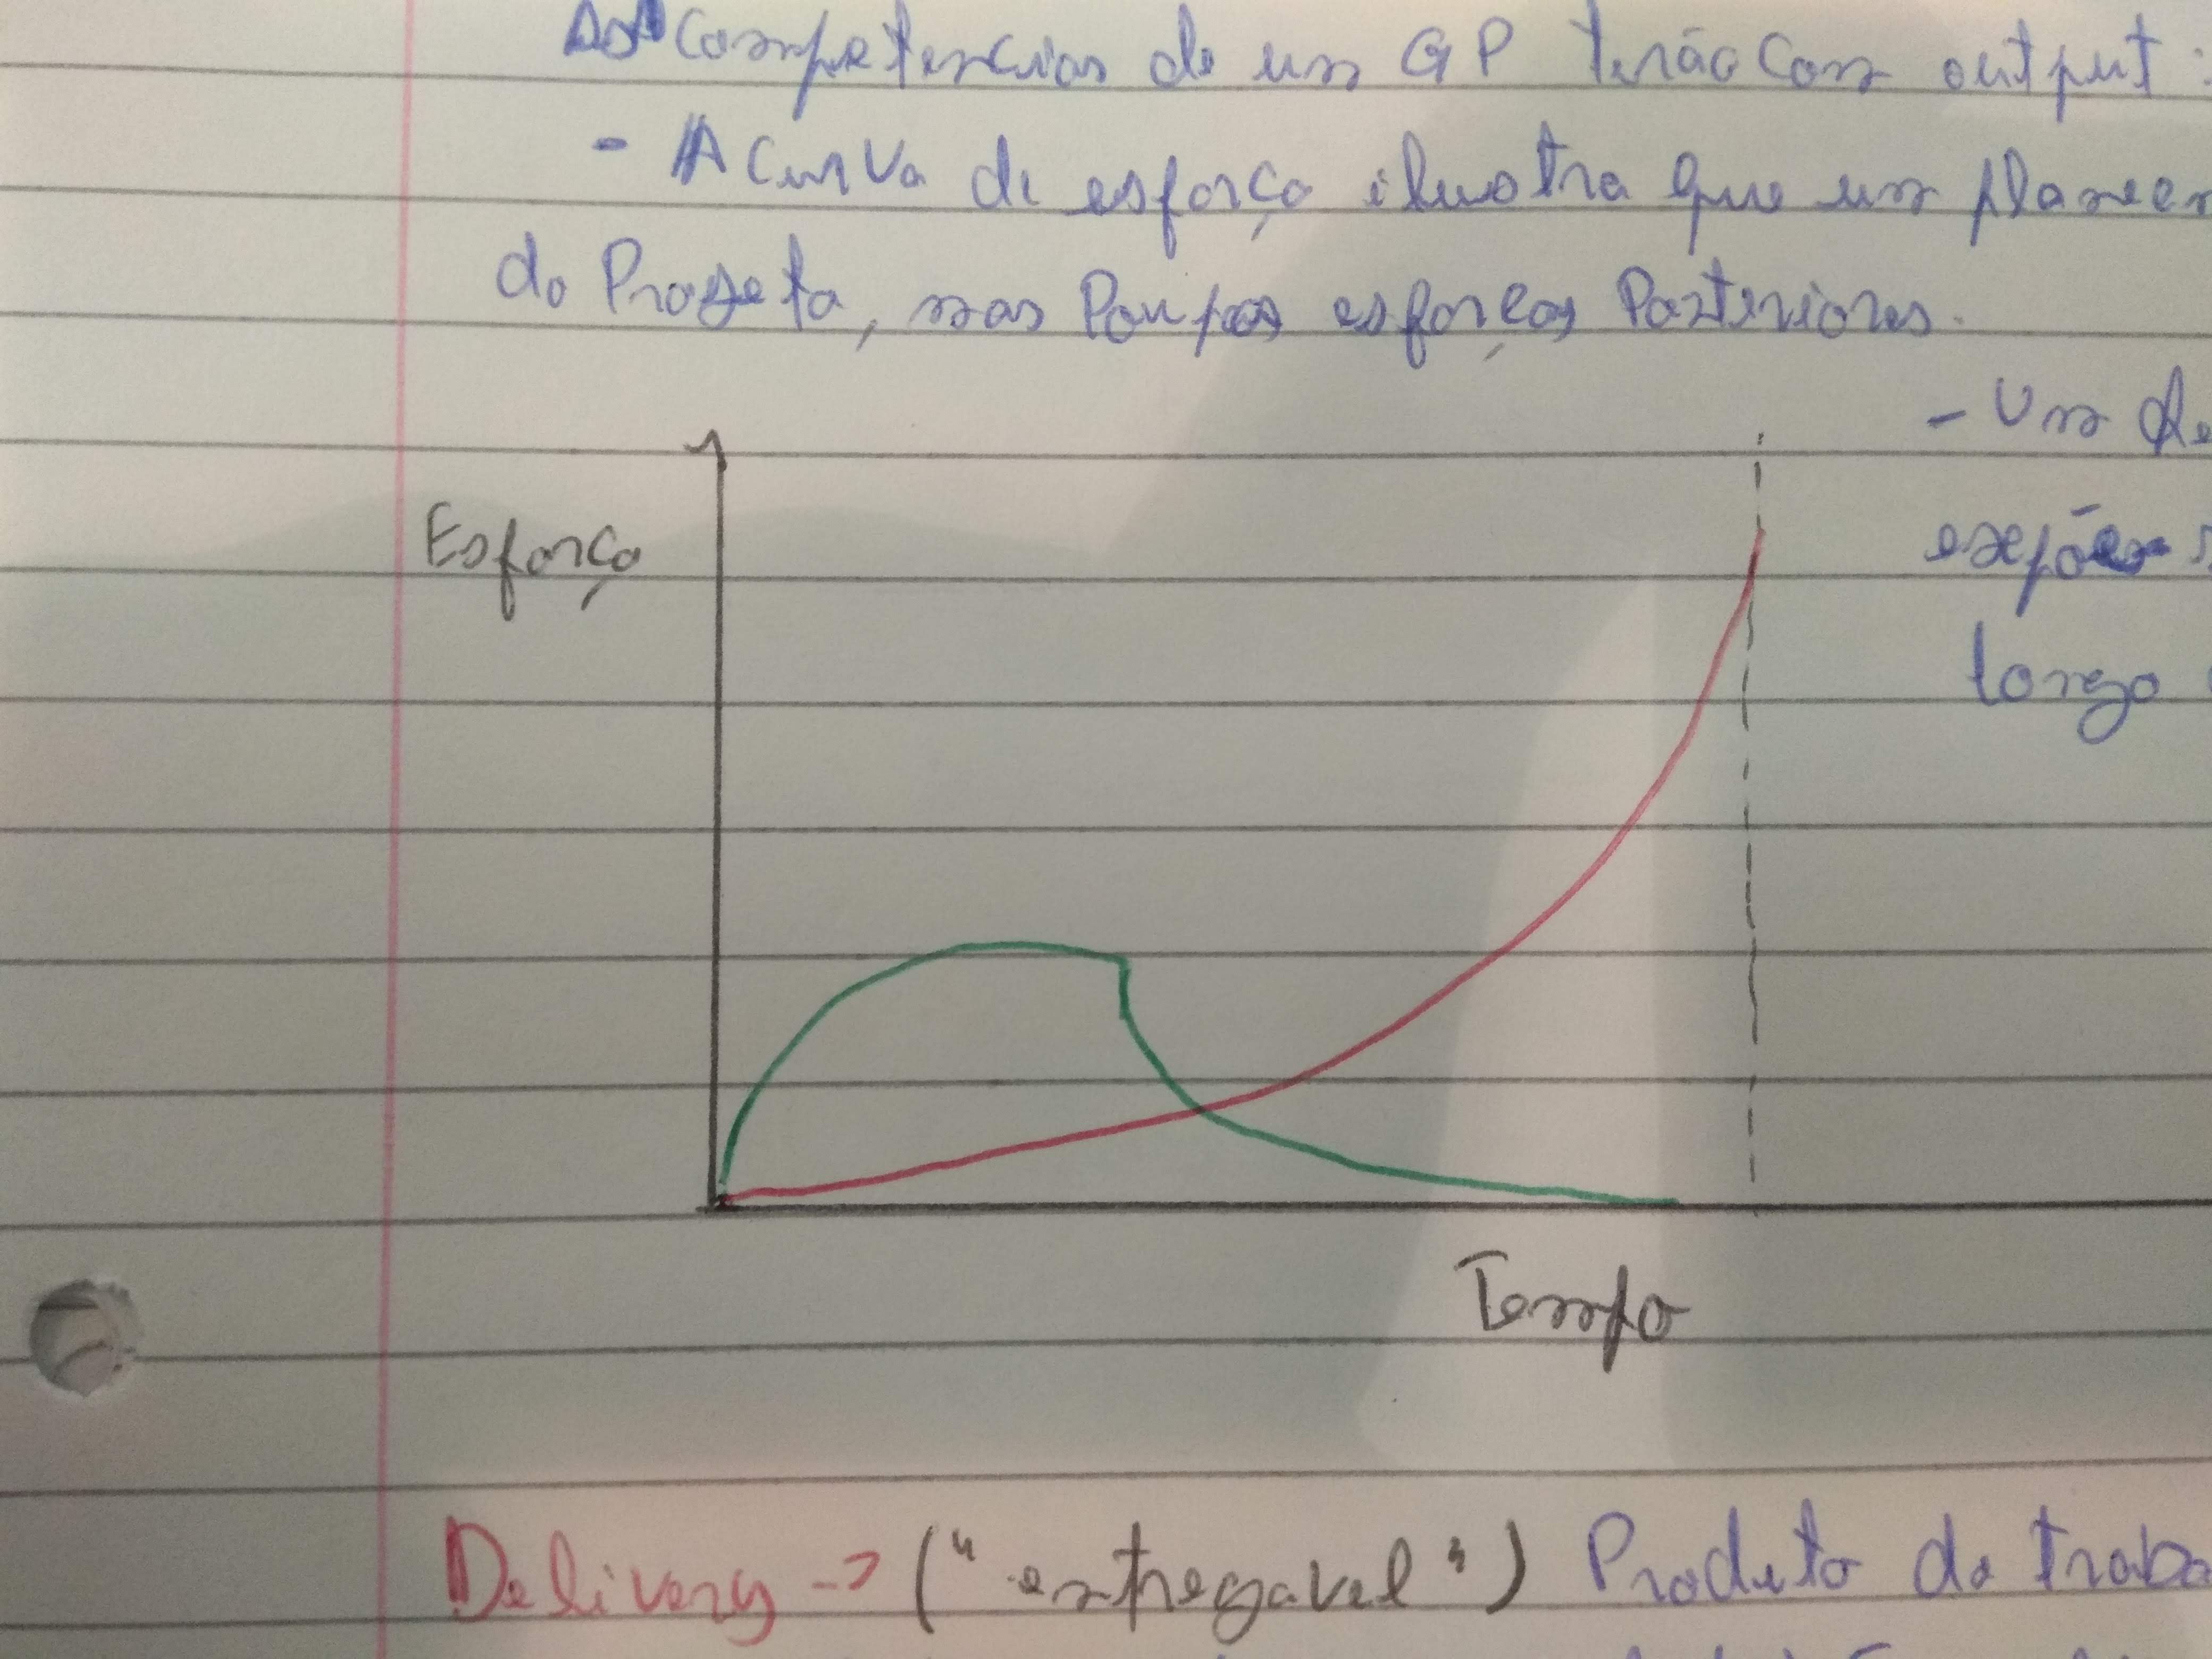 As Competencias de um GP terão com output :
- A Curva de esforço ilustra que um planeam
do Projeto, mas Poupas esforços Posteriores.
- Um de
Esforço
expões
longo
Tempo
Delivery -> ("entregavel") Produto do traba